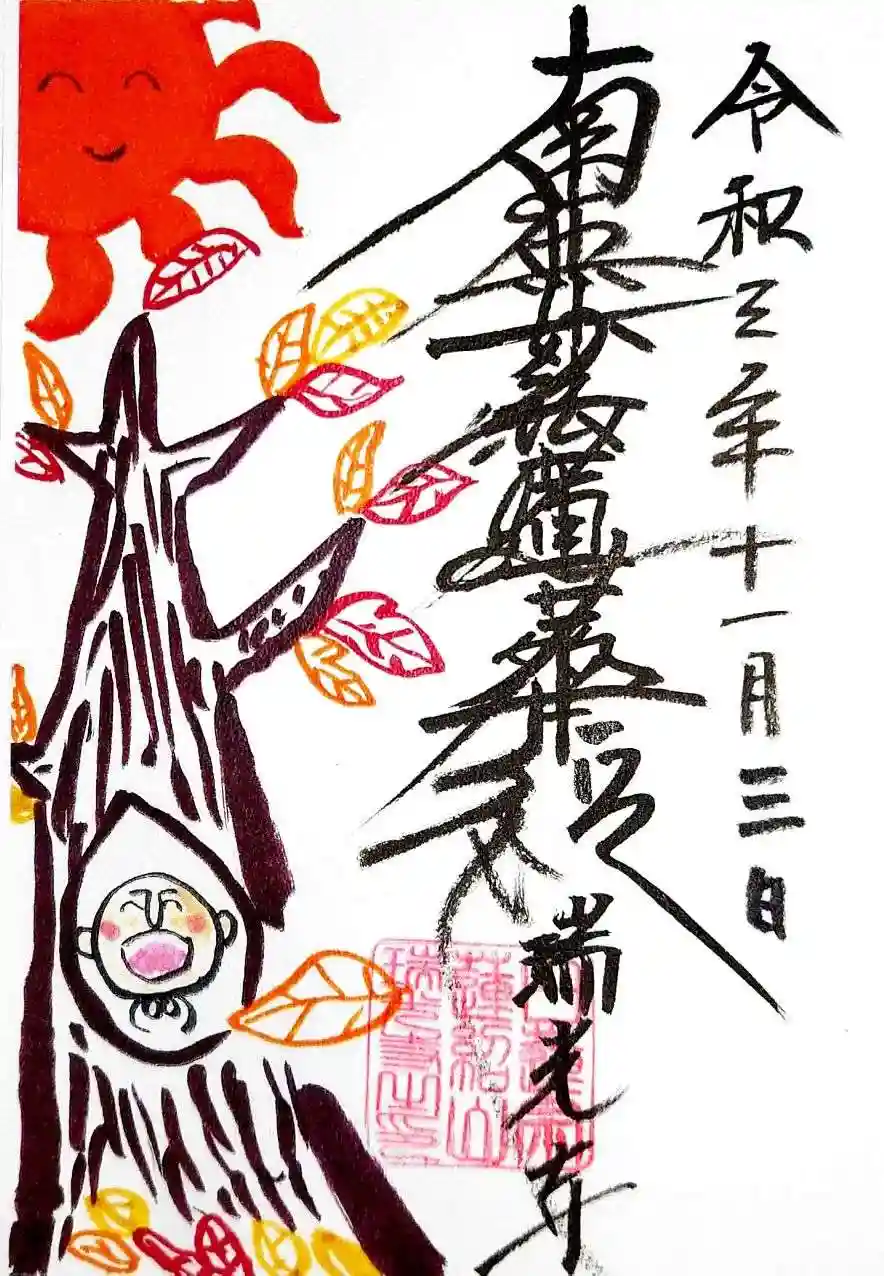 令和三年十一月三日
南無妙法蓮華経
瑞光寺